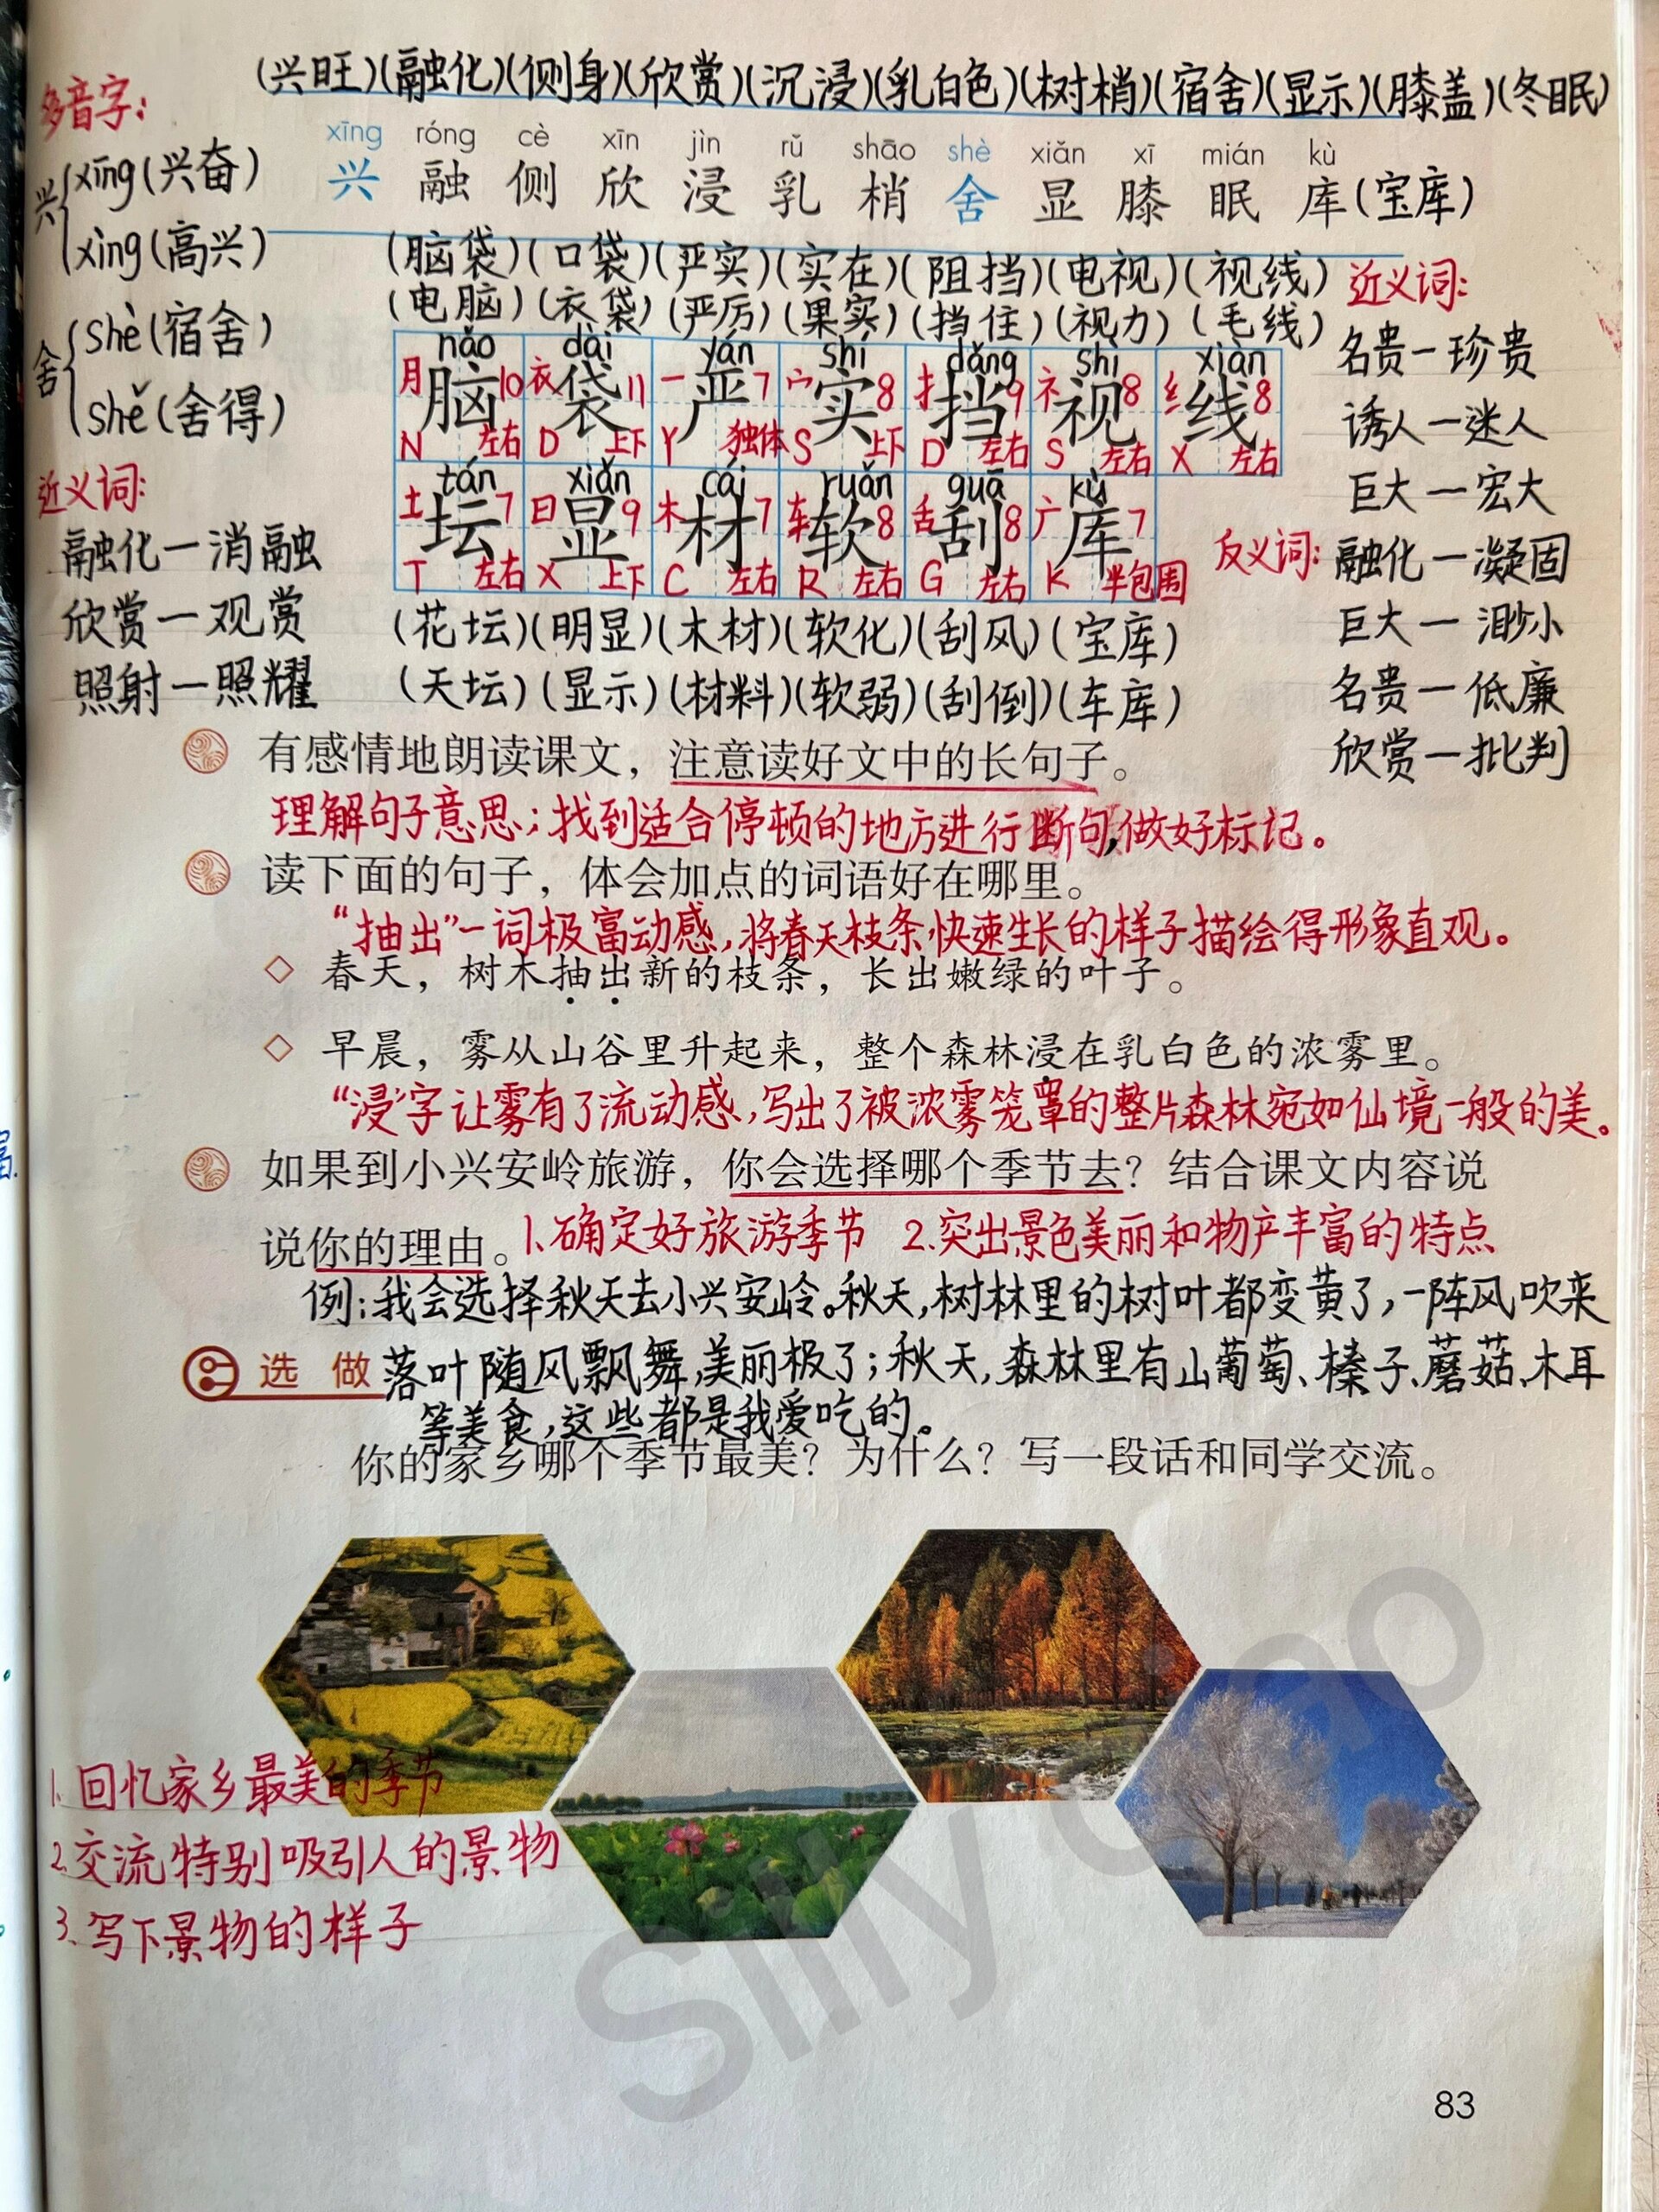 (兴旺)(融化)(侧身)(欣赏)(沉浸)(乳白色)(树梢)(宿舍)(显示)(膝盖)(冬眠)
多音字:
xīng róng cè xīn jìn rǔ shāo shè xiǎn xī mián kù
兴 融 侧 欣 浸 乳 梢 舍 显 膝 眠 库(宝库)
兴{xīng(兴奋)
xìng(高兴)
舍{shè(宿舍)
shě(舍得)
(脑袋)(口袋)(严实)(实在)(阻挡)(电视)(视线)
(电脑)(衣袋)(严厉)(果实)(挡住)(视力)(毛线)
nǎo dài yán shí dǎng shì xiàn
月脑10 衣袋11 一严7 宀实8 扌挡9 礻视8 纟线8
N 左右 D 上下 Y 独体 S 上下 D 左右 S 左右 X 左右
tán xiǎn cái ruǎn guā kù
土坛7 日显9 木材7 车软8 舌刮8 广库7
T 左右 X 上下 C 左右 R 左右 G 左右 K 半包围
(花坛)(明显)(木材)(软化)(刮风)(宝库)
(天坛)(显示)(材料)(软弱)(刮倒)(车库)
近义词:
融化—消融
欣赏—观赏
照射—照耀
近义词:
名贵—珍贵
诱人—迷人
巨大—宏大
反义词:融化—凝固
巨大—渺小
名贵—低廉
欣赏—批判
有感情地朗读课文，注意读好文中的长句子。
理解句子意思;找到适合停顿的地方进行断句,做好标记。
读下面的句子，体会加点的词语好在哪里。
“抽出”一词极富动感,将春天枝条快速生长的样子描绘得形象直观。
◇ 春天，树木抽出新的枝条，长出嫩绿的叶子。
◇ 早晨，雾从山谷里升起来，整个森林浸在乳白色的浓雾里。
“浸”字让雾有了流动感,写出了被浓雾笼罩的整片森林宛如仙境一般的美。
如果到小兴安岭旅游，你会选择哪个季节去？结合课文内容说
说你的理由。1.确定好旅游季节 2.突出景色美丽和物产丰富的特点
例:我会选择秋天去小兴安岭。秋天,树林里的树叶都变黄了,一阵风吹来
选做 落叶随风飘舞,美丽极了;秋天,森林里有山葡萄、榛子、蘑菇、木耳
等美食,这些都是我爱吃的。
你的家乡哪个季节最美？为什么？写一段话和同学交流。
1.回忆家乡最美的季节
2.交流特别吸引人的景物
3.写下景物的样子
83